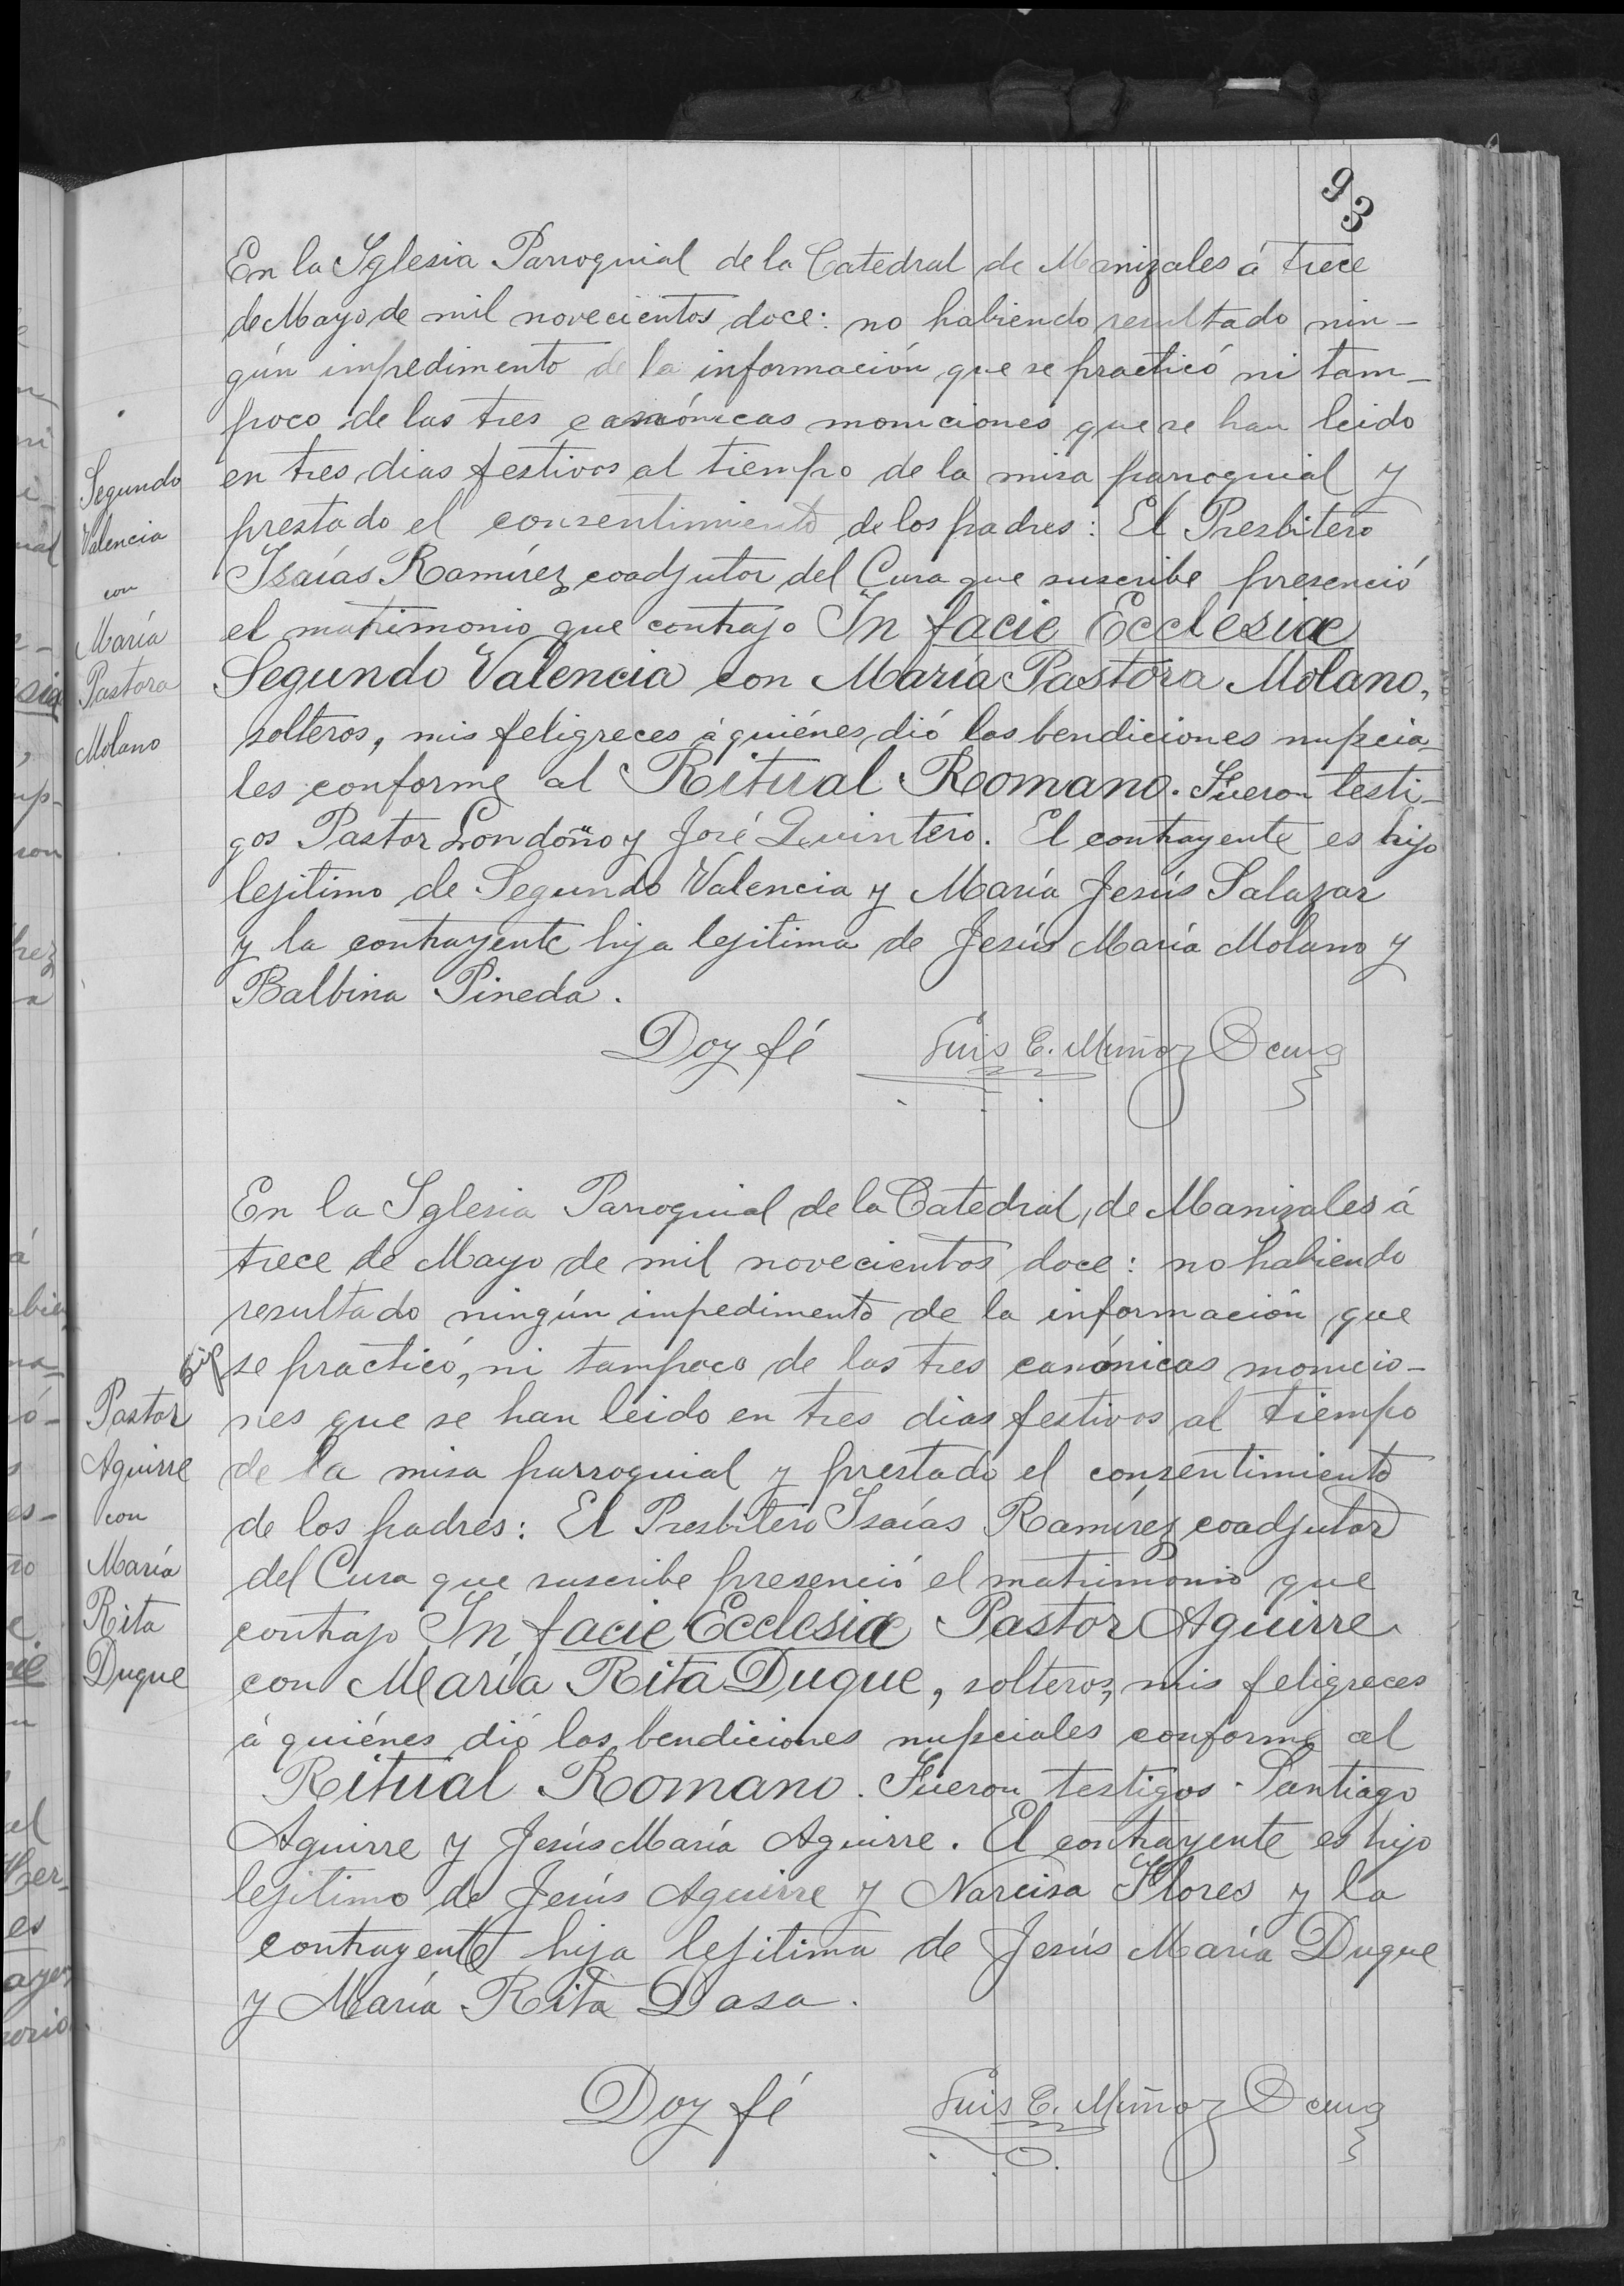 93
Segundo
Valencia
con
María
Pastora
Molano
En la Iglesia Parroquial de la Catedral de Manizales á trece
de Mayo de mil novecientos doce: no habiendo resultado nin-
gún impedimento de la información que se practicó ni tam-
poco de las tres canónicas moniciones que se han leido
en tres dias festivos al tiempo de la misa parroquial y
prestado el consentimiento de los padres: El Presbitero
Isaías Ramírez coadjutor del Cura que suscribe presenció
el matrimonio que contrajo In facie Ecclesiæ
Segundo Valencia con María Pastora Molano,
solteros, mis feligreces á quiénes dió las bendiciones nupcia-
les conforme al Ritual Romano. Fueron testi-
gos Pastor Londoño y José Quintero. El contrayente es hijo
lejitimo de Segundo Valencia y María Jesús Salazar
y la contrayente hija lejitima de Jesús María Molano y
Balbina Pineda.
Doy fé Luis E. Muñoz O cura
Pastor
Aguirre
con
María
Rita
Duque
En la Iglesia Parroquial de la Catedral, de Manizales á
trece de Mayo de mil novecientos doce: no habiendo
resultado ningún impedimento de la información que
se practicó, ni tampoco de las tres canónicas monicio-
nes que se han leido en tres dias festivos al tiempo
de la misa parroquial y prestado el consentimiento
de los padres: El Presbitero Isaías Ramírez coadjutor
del Cura que suscribe presenció el matrimonio que
contrajo In facie Ecclesiæ Pastor Aguirre
con María Rita Duque, solteros, mis feligreces
á quiénes dió las bendiciones nupciales conforme al
Ritual Romano. Fueron testigos Santiago
Aguirre y Jesús María Aguirre. El contrayente es hijo
lejitimo de Jesús Aguirre y Narcisa Flores y la
contrayente hija lejitima de Jesús María Duque
y María Rita Dasa.
Doy fé Luis E. Muñoz O cura